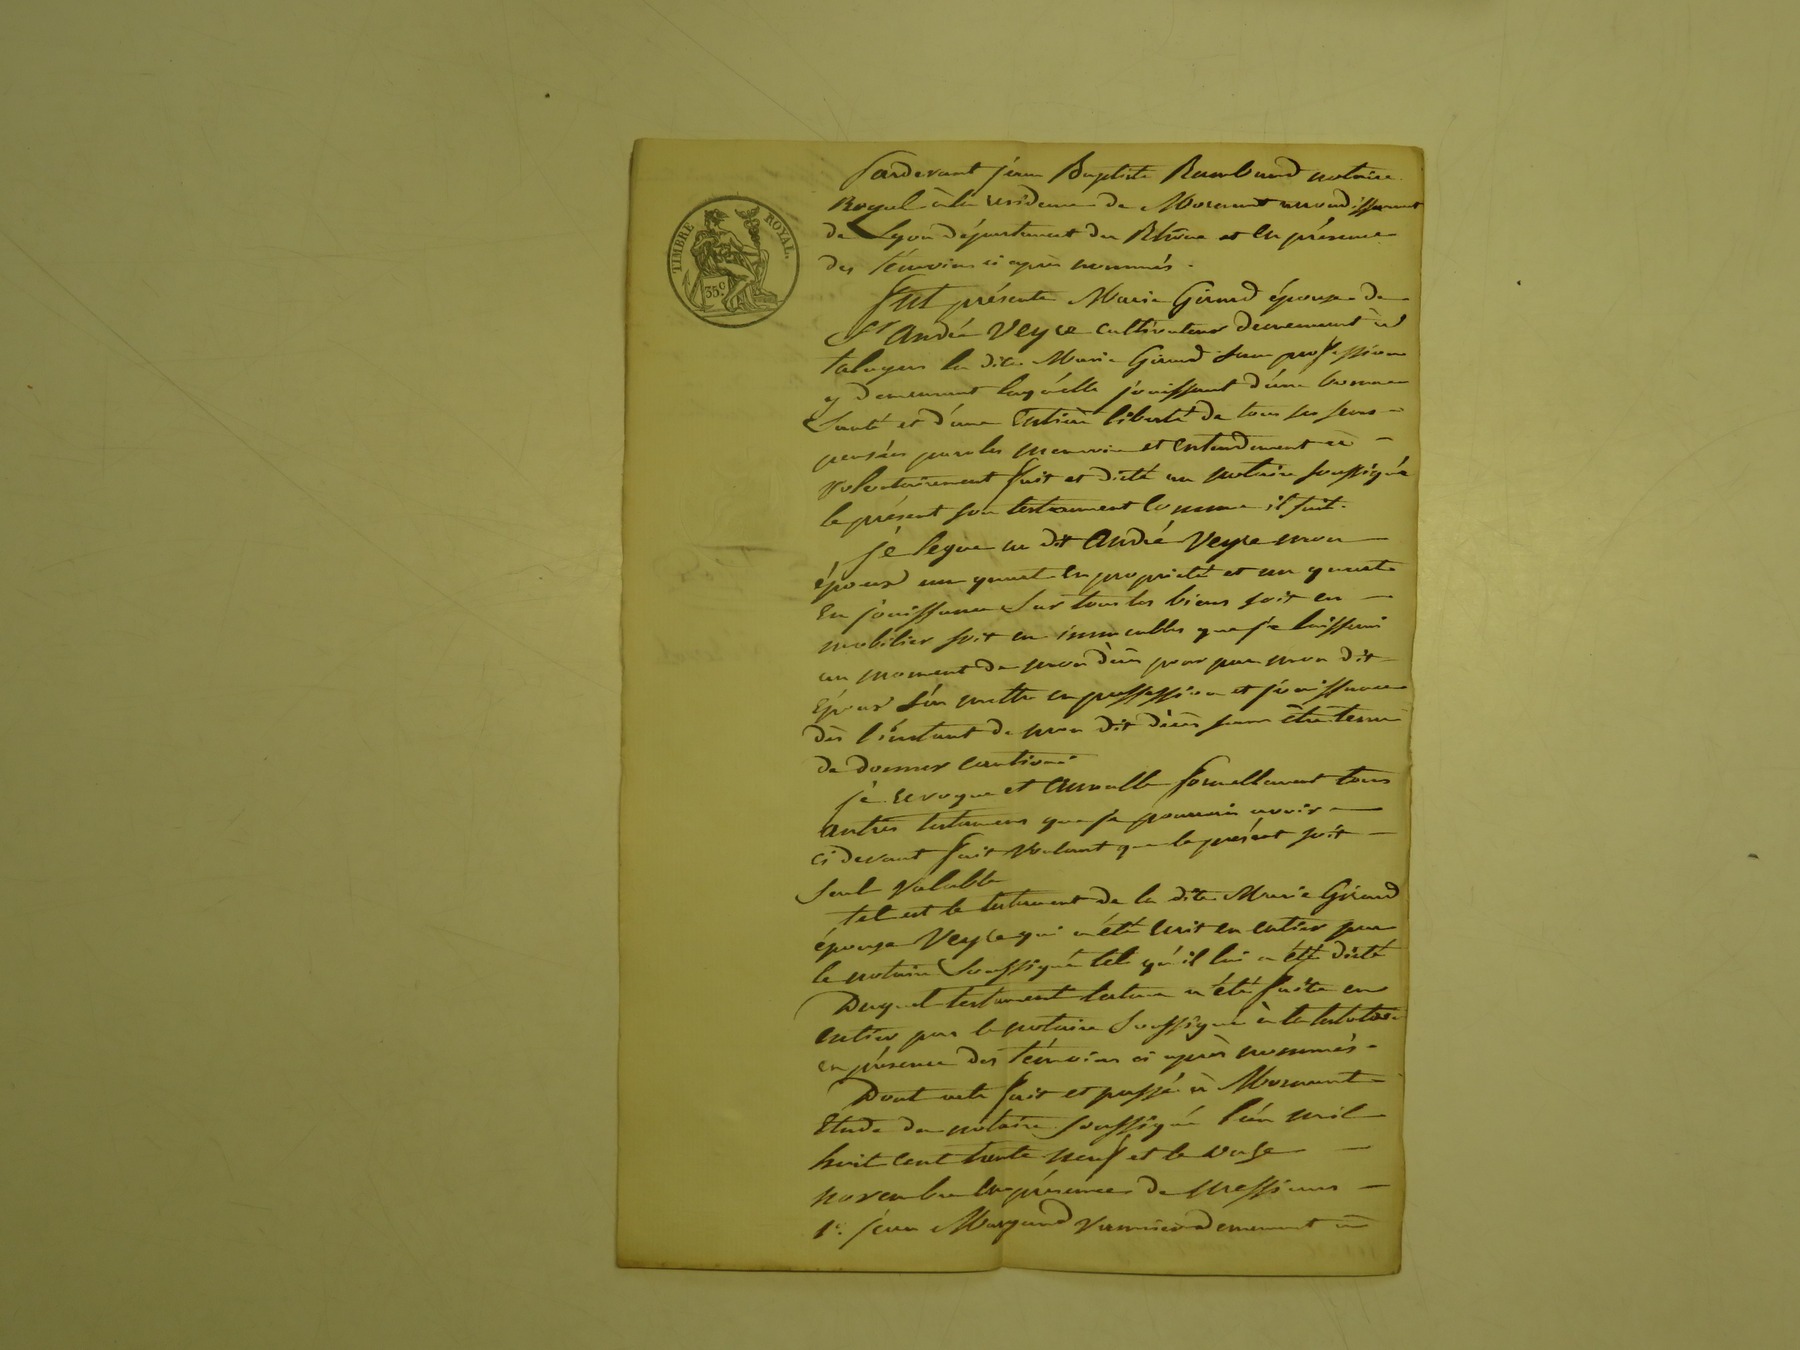 TIMBRE ROYAL.
35 c.
Pardevant jean Baptiste Rambaud notaire
Royal à la residence de Mornant arrondissement
de Lyon département du Rhône et en présence
des témoins ci après nommés.
fut présente Marie Girard épouse de
Sr André Veyre cultivateur demeurant à
taluyers la dite Marie Girard sans profession
y demeurant laquelle jouissant d'une bonne
santé et d'une Entière liberté de tous ses sens
pensées paroles memoire et entendement a
volontairement fait et dicté au notaire soussigné
le présent son testament comme il suit.
je legue au dit André Veyre mon
époux un quart en propriété et un quart
En jouissance sur tous les biens soit en
mobilier soit en immeubles que je laisserai
au moment de mon décès pour par mon dit
Epoux s'en mettre en possession et jouissance
dès l'instant de mon dit décès sans être tenu
de donner caution
je revoque et annulle formellement tous
autres testamens que je pourrais avoir
ci devant fait voulant que le présent soit
seul valable
tel est le testament de la dite Marie Girard
épouse Veyre qui a été écrit en entier par
le notaire soussigné tel qu'il lui a été dicté
Duquel testament lecture a été faite en
entier par le notaire soussigné à la testatrice
en présence des témoins ci après nommés.
Dont acte fait et passé à Mornant
Etude du notaire soussigné l'an mil
huit cent trente neuf et le onze
novembre en présence de messieurs
1° jean demeurant à